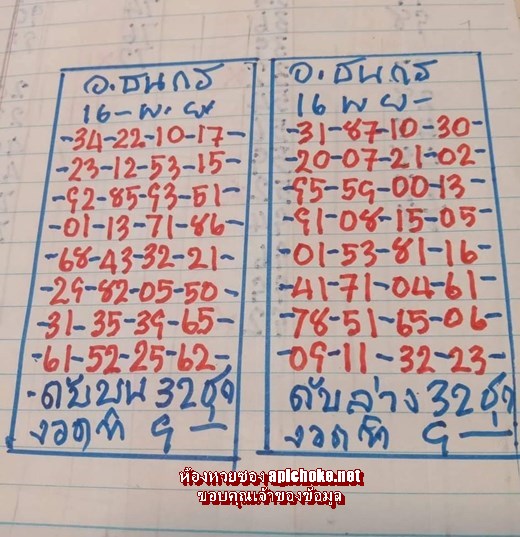 อ.ธนกร
16-พ.ย
-34-22-10-17-
-23-12-53-15-
-92-85-93-51-
-01-13-71-86-
-68-43-32-21-
-29-82-05-50-
-31-35-39-65-
-61-52-25-62-
-ดับบน 32ชุด
งวดที่ 9-
อ.ธนกร
16 พ ย-
-31-87-10-30-
-20-07-21-02-
-95-59-00-13-
-91-08-15-05-
-01-53-81-16-
-41-71-04-61-
-78-51-65-06-
-09-11-32-23-
ดับล่าง 32ชุด
งวดที่ 9-
ห้องหวยซอง aplchoke.net
ขอบคุณเจ้าของข้อมูล